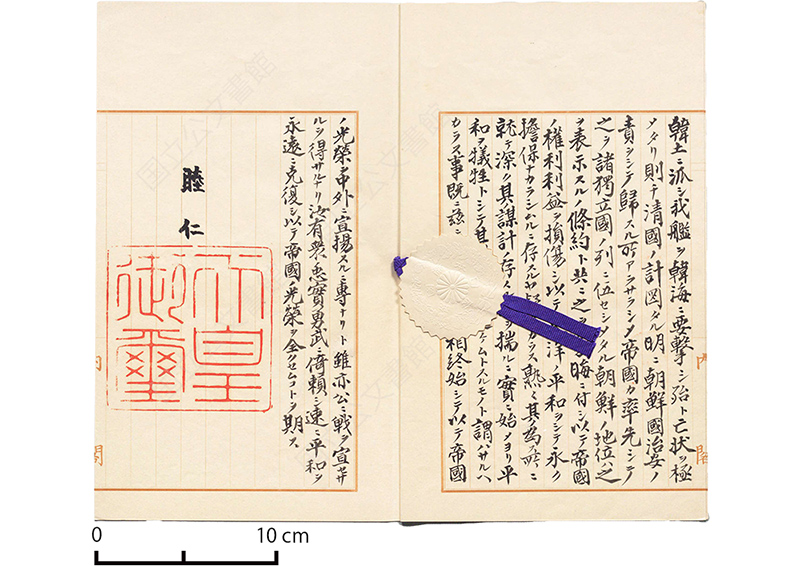 韓土ニ派シ我艦ヲ韓海ニ要撃シ殆ト亡状ヲ極
メタリ則チ清國ノ計図タル明ニ朝鮮國治安ノ
責ヲシテ歸スル所アラサラシメ帝國カ率先シテ
之ヲ諸獨立國ノ列ニ伍セシメタル朝鮮ノ地位ハ之
ヲ表示スルノ條約ト共ニ之ヲ晦ニ付シ以テ帝國
ノ權利利益ヲ損傷シ以テ洋ノ平和ヲシテ永ク
擔保ナカラシムルニ存スルヤカラス熟其ノ為ス所ニ
就テ深ク其ノ謀計ノ存スヲ揣ルニ實ニ始メヨリ平
和ヲ犠牲トシテ其ムトスルモノト謂ハサルヘ
カラス事既ニ茲ニ相終始シテ以テ帝國
ノ光榮ヲ中外ニ宣揚スルニ專ナリト雖亦公ニ戰ヲ宣セサ
ルヲ得サルナリ汝有衆ノ忠實勇武ニ倚頼シ速ニ平和ヲ
永遠ニ克復シ以テ帝國ノ光榮ヲ全クセムコトヲ期ス
睦仁
天皇
御璽
内閣
国立公文書館
0 10 cm